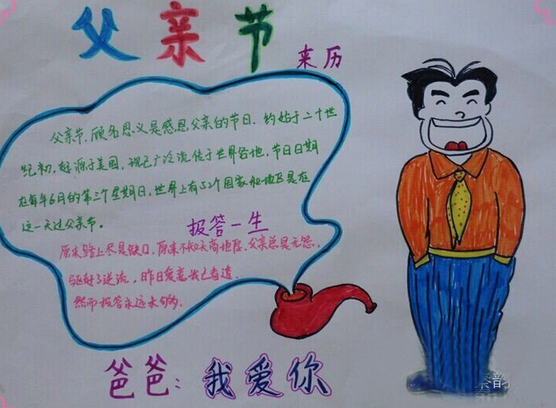 父亲节
来历
父亲节,顾名思义是感恩父亲的节日.约始于二十世
纪初,起源于美国,现已广泛流传于世界各地,节日日期
在每年6月的第三个星期日,世界上有52个国家和地区是在
这一天过父亲节。
报答一生
原来路上尽是缺口,原来不知天高地厚,父亲总是无怨,
昨日爱意我已看清
然而报答永远未够
爸爸:我爱你